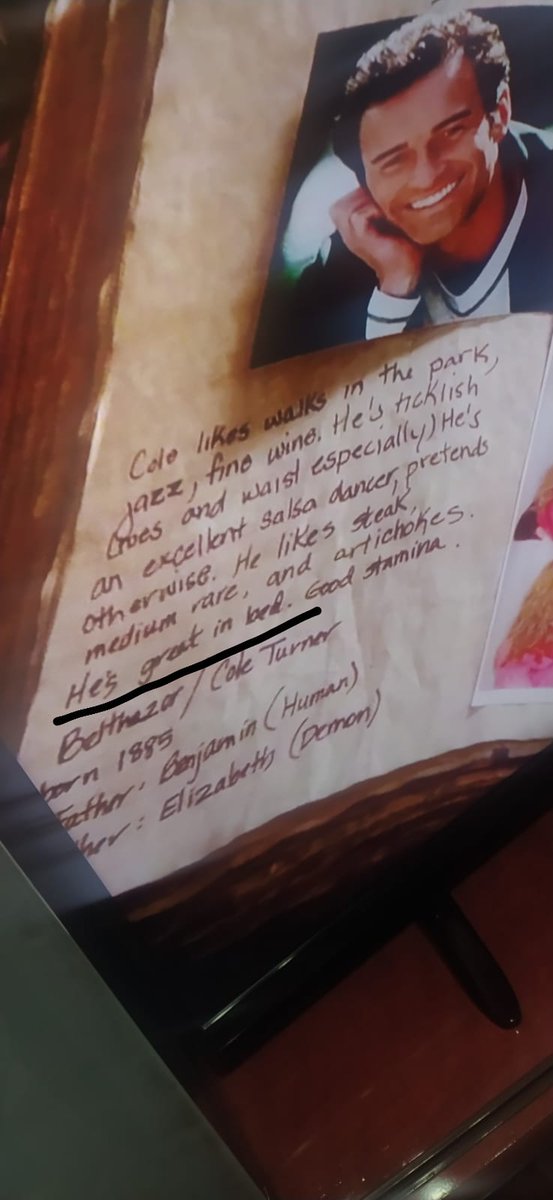 Cole likes walks in the park,
jazz, fine wine. He's ticklish
(toes and waist especially) He's
an excellent salsa dancer, pretends
otherwise. He likes steak,
medium rare, and artichokes.
He's great in bed. Good stamina.
Belthazor / Cole Turner
born 1885
Father: Benjamin (Human)
ther: Elizabeth (Demon)